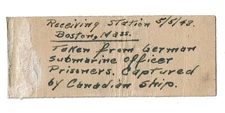 Receiving Station 5/5/43.
Boston, Mass.
Taken from German
submarine officer
Prisoners. Captured
by Canadian ship.